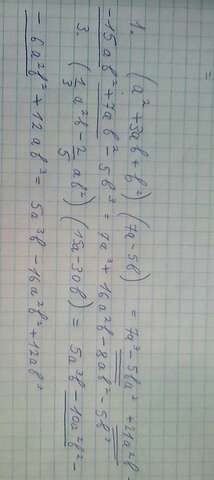 =
1. (a² + 3ab + b²)(7a - 5b) = 7a³ - 5ba² + 21a²b -
- 15ab² + 7ab² - 5b³ = 7a³ + 16a²b - 8ab² - 5b³
3. (1/3 a²b - 2/5 ab²)(15a - 30b) = 5a³b - 10a²b² -
- 6a²b² + 12ab³ = 5a³b - 16a²b² + 12ab³